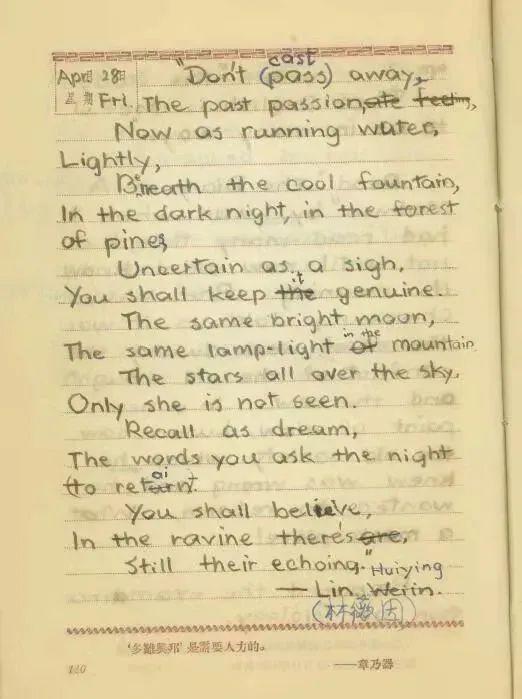 cast
April 28日 "Don't (pass) away,
星期 Fri. The past passion,ate feeling,
Now as running water,
Lightly,
Beneath the cool fountain,
In the dark night, in the forest
of pines,
Uncertain as a sigh,
it
You shall keep the genuine.
The same bright moon,
in the
The same lamp-light of mountain
The stars all over the sky.
Only she is not seen.
Recall as dream,
The words you ask the night
ai
(to return.
You shall believe,
In the ravine there's are,
Still their echoing."
Huiying
— Lin Weiin.
(林徽因)
'多難興邦'是需要人力的。
140 ——章乃器